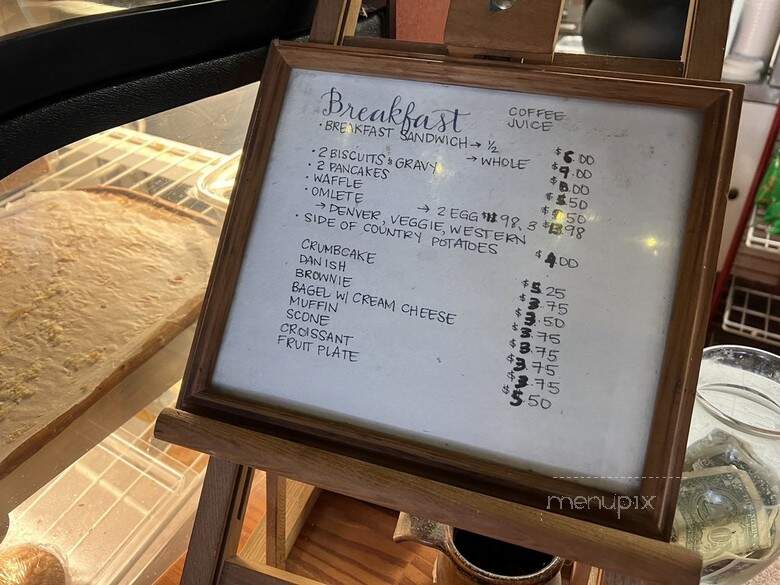 Breakfast
COFFEE
JUICE
• BREAKFAST SANDWICH → ½ $6.00
→ WHOLE $9.00
• 2 BISCUITS & GRAVY $8.00
• 2 PANCAKES $ .50
• WAFFLE $ .50
• OMLETE → 2 EGG 98, 3 98
→ DENVER, VEGGIE, WESTERN
• SIDE OF COUNTRY POTATOES $4.00
CRUMBCAKE $5.25
DANISH $3.75
BROWNIE $3.50
BAGEL W/ CREAM CHEESE $3.75
MUFFIN $3.75
SCONE $3.75
CROISSANT $3.75
FRUIT PLATE $5.50
menupix